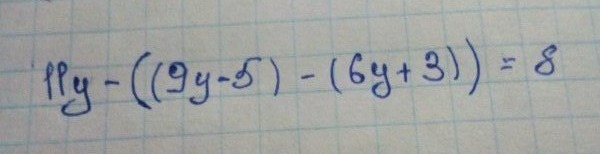 11y - ((9y-5) - (6y+3)) = 8